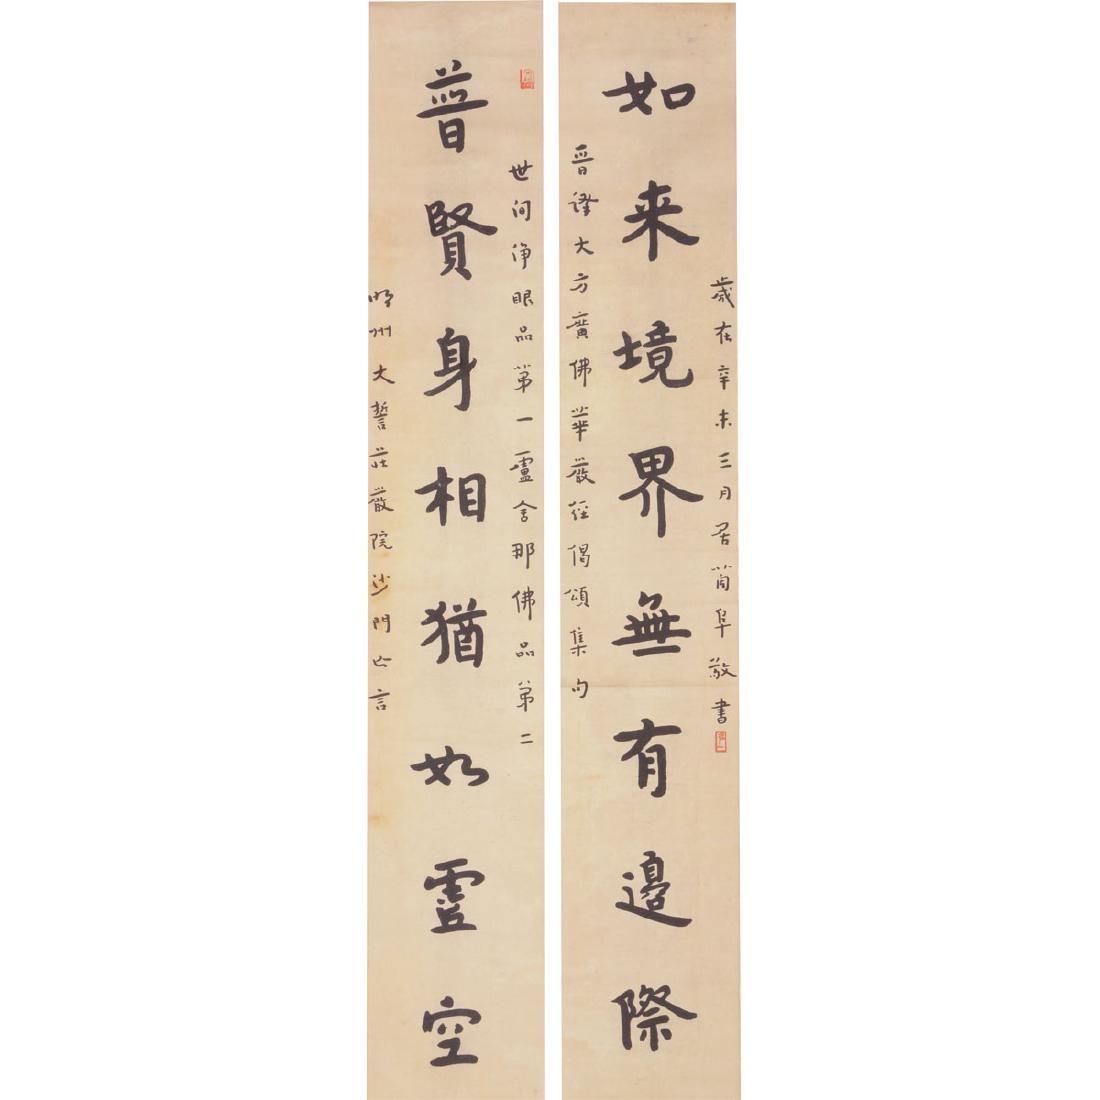 歲在辛未三月居菂阜敬書
如来境界無有邊際
晉譯大方廣佛華嚴經偈頌集句
世间淨眼品第一盧舍那佛品第二
普賢身相猶如虛空
明州大誓莊嚴院沙門亡言